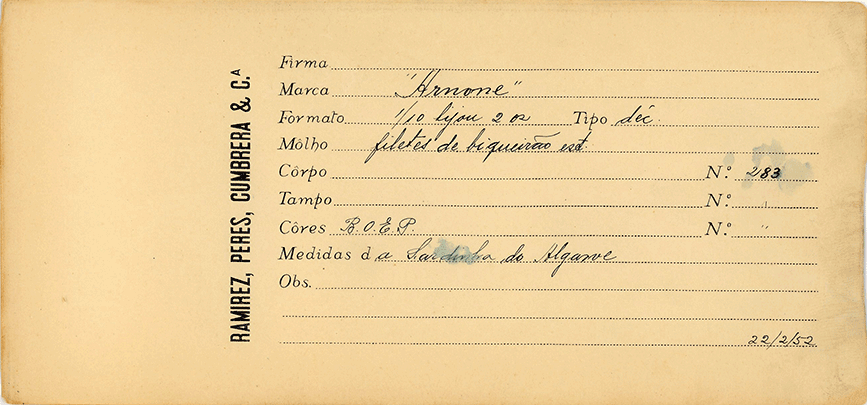 RAMIREZ, PERES, CUMBRERA & C.ᴬ
Firma
Marca "Arnone"
Formato 1/10 bijou 2 oz Tipo déc.
Môlho filetes de biqueirão est.
Côrpo N.º 283
Tampo N.º "
Côres B.O.E.P. N.º "
Medidas da Sardinha do Algarve
Obs.
22/2/52